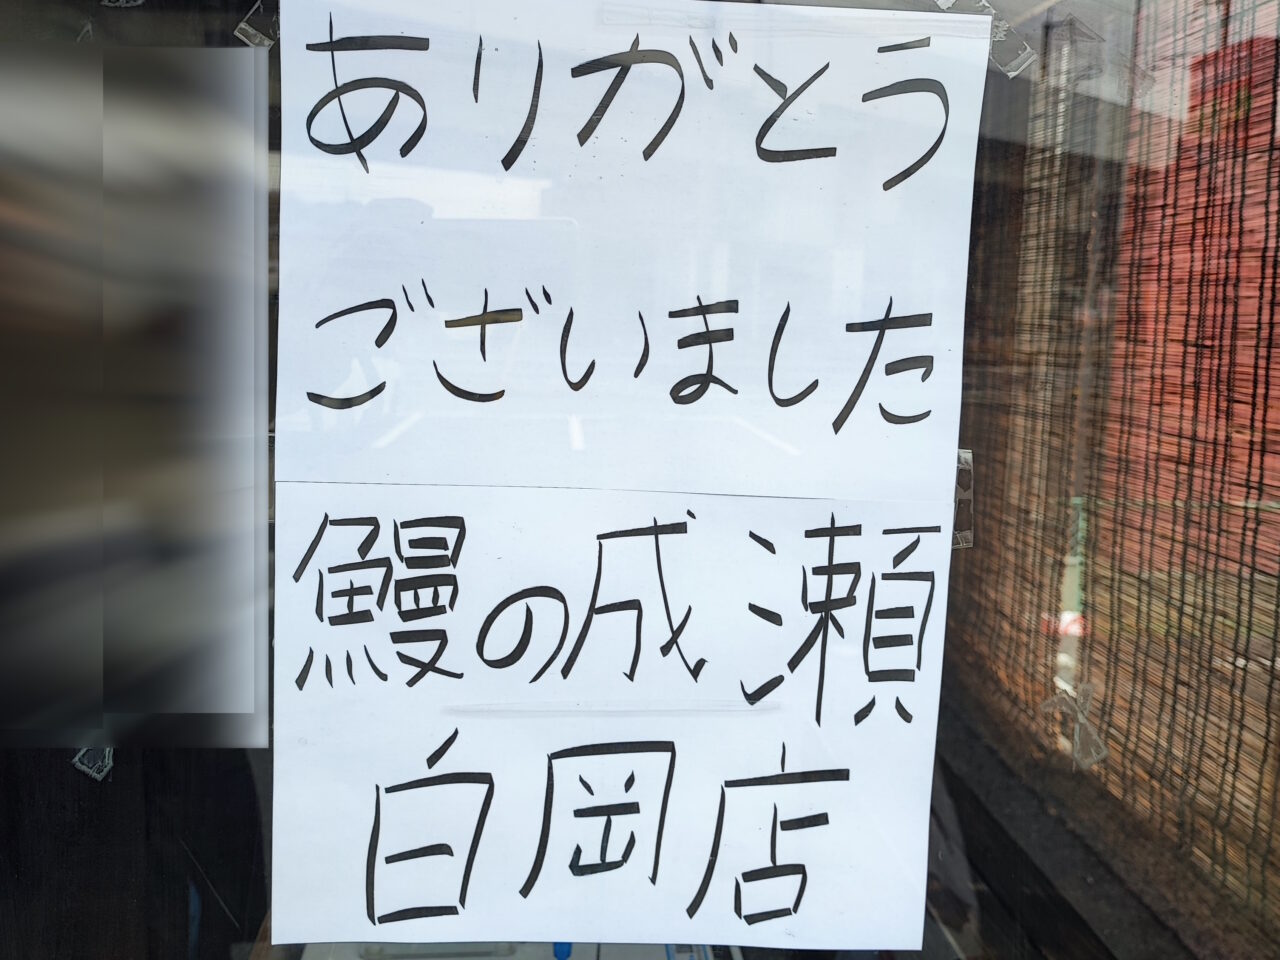 ありがとう
ございました
鰻の成瀬
白岡店